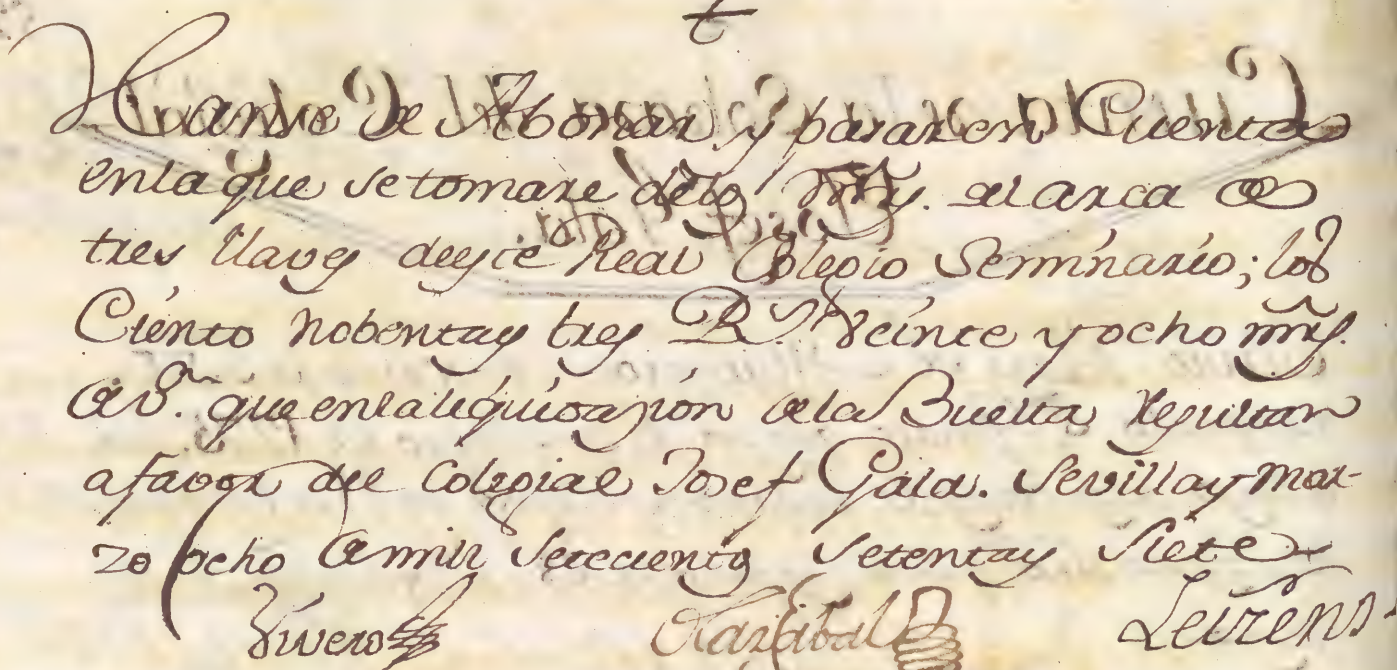 †
Hanse de Abonar y pasar en Cuenta
enla que se tomare delos mrs. del arca de
tres llaves deeste Real Colegio Seminario; los
Ciento nobentay tres Rs. Veinte y ocho mrs.
de vn. que enla liquidazion dela Buelta Resultan
a favor del Colegial Josef Gala. Sevilla y Mar-
zo ocho de mil setecientos setentay Siete
Vivero Olazabal Leirens